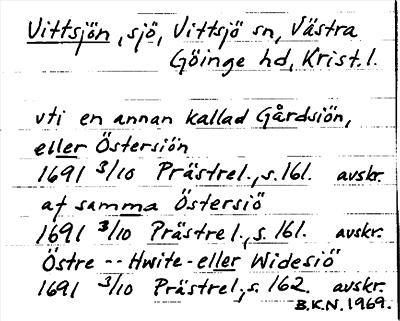 Vittsjön, sjö, Vittsjö sn, Västra
Göinge hd, Krist. l.
vti en annan kallad Gårdsiön,
eller Östersiön
1691 3/10 Prästrel., s. 161. avskr.
af samma Östersiö
1691 3/10 Prästrel., s. 161. avskr.
Östre -- Hwite- eller Widesiö
1691 3/10 Prästrel., s. 162. avskr.
B.K.N. 1969.